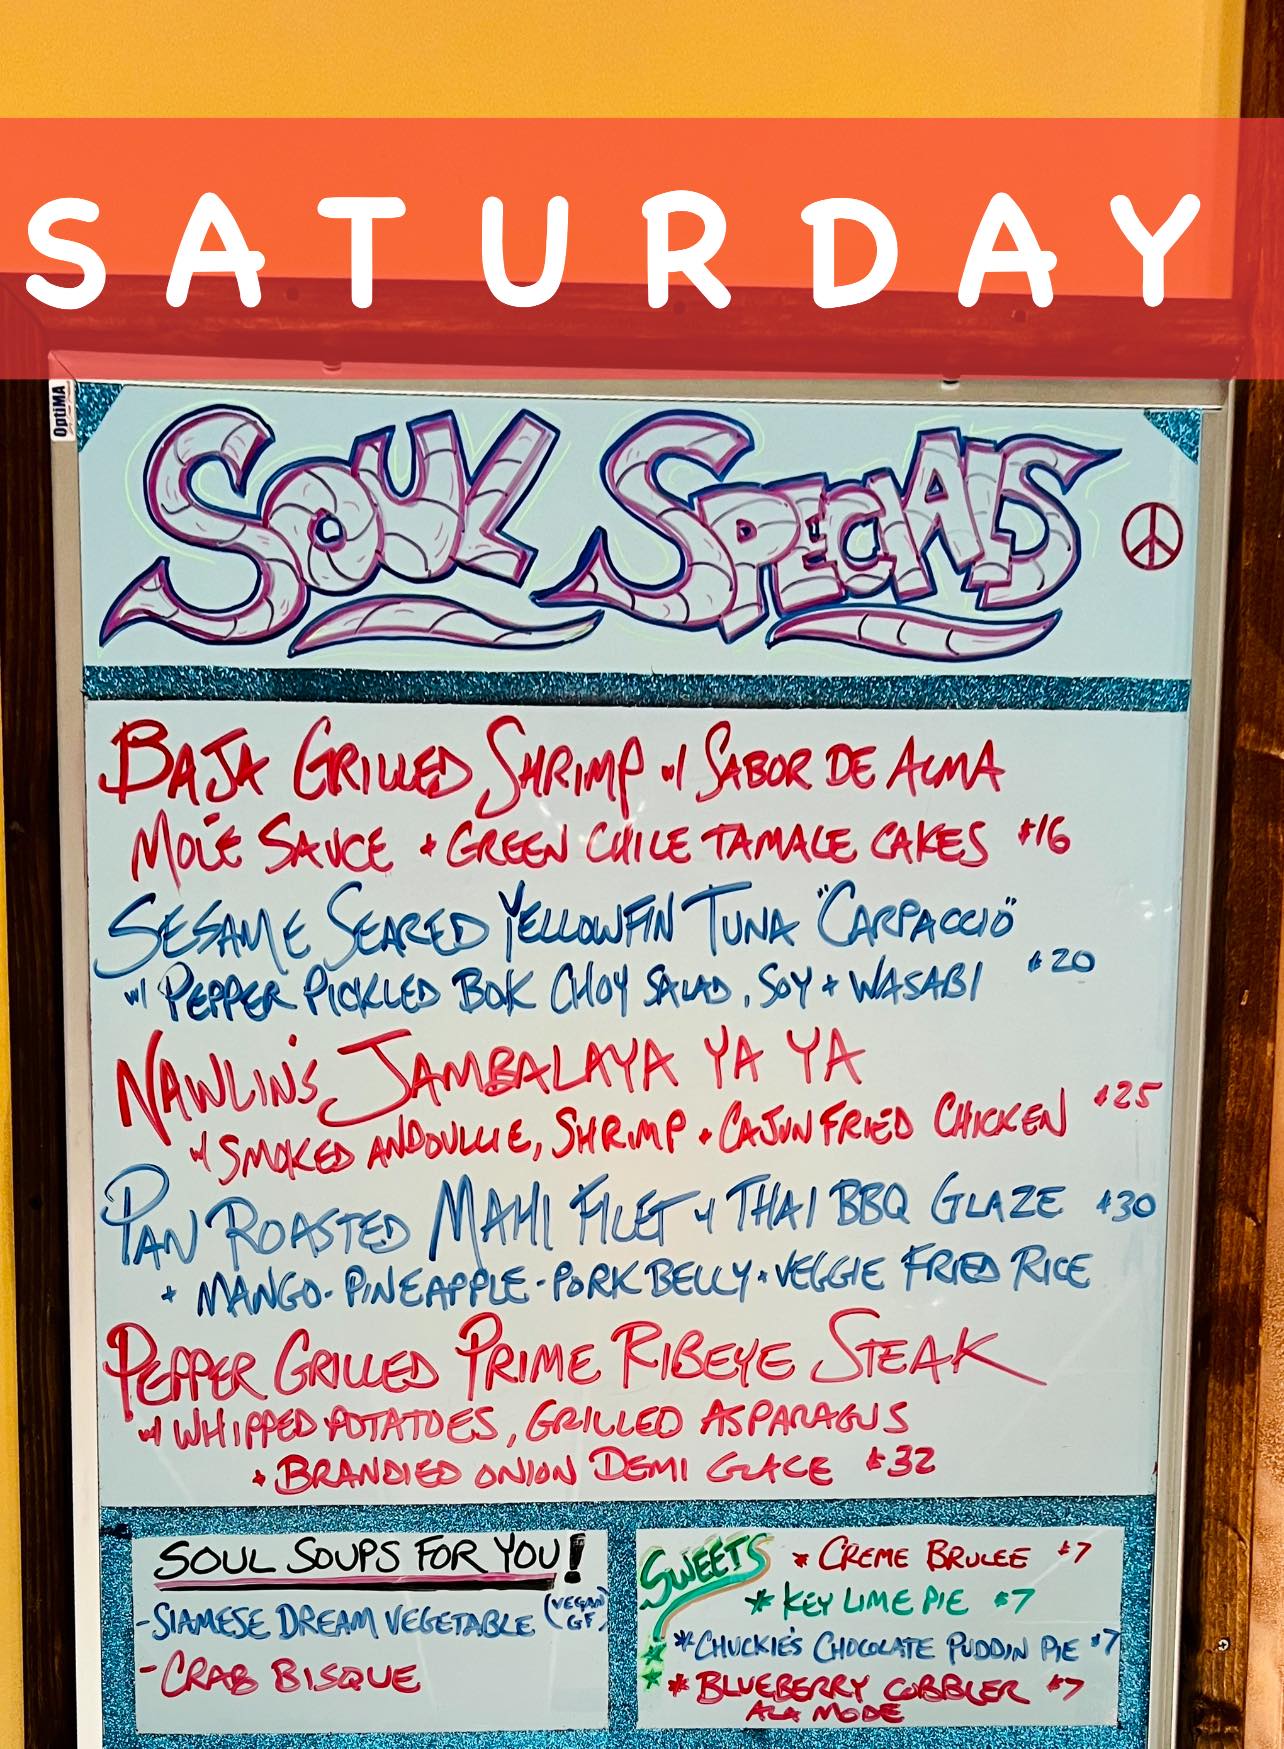 SATURDAY
OptiMA
SOUL SPECIALS
BAJA GRILLED SHRIMP w/ SABOR DE ALMA
MOLE SAUCE + GREEN CHILE TAMALE CAKES $16
SESAME SEARED YELLOWFIN TUNA "CARPACCIO"
w/ PEPPER PICKLED BOK CHOY SALAD, SOY + WASABI $20
NAWLIN'S JAMBALAYA YA YA
w/ SMOKED ANDOULLIE, SHRIMP + CAJUN FRIED CHICKEN $25
PAN ROASTED MAHI FILET w/ THAI BBQ GLAZE $30
+ MANGO-PINEAPPLE-PORK BELLY + VEGGIE FRIED RICE
PEPPER GRILLED PRIME RIBEYE STEAK
w/ WHIPPED POTATOES, GRILLED ASPARAGUS
+ BRANDIED ONION DEMI GLACE $32
SOUL SOUPS FOR YOU!
- SIAMESE DREAM VEGETABLE (VEGAN GF)
- CRAB BISQUE
SWEETS
* CREME BRULEE $7
* KEY LIME PIE $7
* CHUCKIE'S CHOCOLATE PUDDIN PIE $7
* BLUEBERRY COBBLER $7
ALA MODE